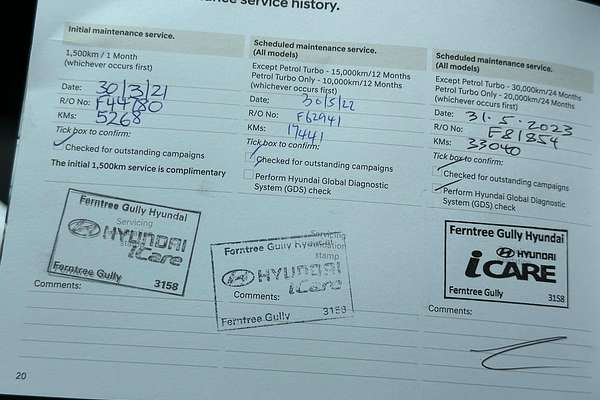 service history.
Initial maintenance service.
1,500km / 1 Month
(whichever occurs first)
Date: 30/3/21
R/O No: F44780
KMs: 5268
Tick box to confirm:
Checked for outstanding campaigns
The initial 1,500km service is complimentary
Ferntree Gully Hyundai
Servicing
HYUNDAI
iCare
Ferntree Gully 3158
Comments:
Scheduled maintenance service.
(All models)
Except Petrol Turbo - 15,000km/12 Months
Petrol Turbo Only - 10,000km/12 Months
(whichever occurs first)
Date: 30/5/22
R/O No: F62941
KMs: 17441
Tick box to confirm:
Checked for outstanding campaigns
Perform Hyundai Global Diagnostic
System (GDS) check
Servicing
Ferntree Gully Hyundai
stamp
HYUNDAI
iCare
Comments:
3158
Ferntree Gully
Scheduled maintenance service.
(All models)
Except Petrol Turbo - 30,000km/24 Months
Petrol Turbo Only - 20,000km/24 Months
(whichever occurs first)
Date: 31.5.2023
R/O No: F81854
KMs: 33040
Tick box to confirm:
Checked for outstanding campaigns
Perform Hyundai Global Diagnostic
System (GDS) check
Ferntree Gully Hyundai
HYUNDAI
iCARE
Ferntree Gully 3158
Comments:
20